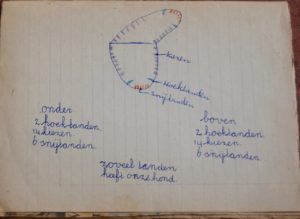 kiezen
hoektanden
snijtanden
onder
2 hoektanden.
14 kiezen.
6 snijtanden.
boven
2 hoektanden
14 kiezen.
6 snijtanden.
zoveel tanden
heeft onze hond.